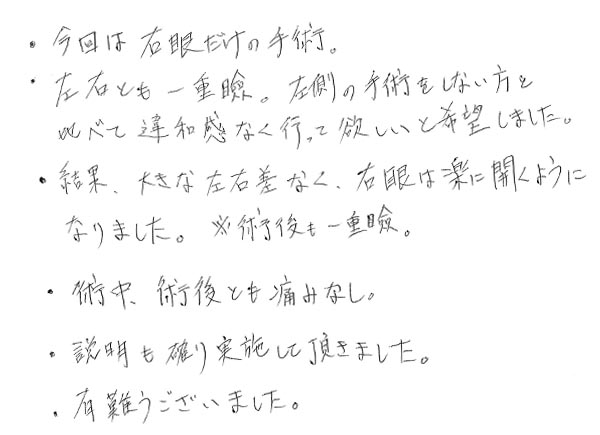 ・今回は右眼だけの手術。
・左右とも一重瞼。左側の手術をしない方と
比べて違和感なく行って欲しいと希望しました。
・結果、大きな左右差なく、右眼は楽に開くように
なりました。※術後も一重瞼。
・術中、術後とも痛みなし。
・説明も確り実施して頂きました。
・有難うございました。